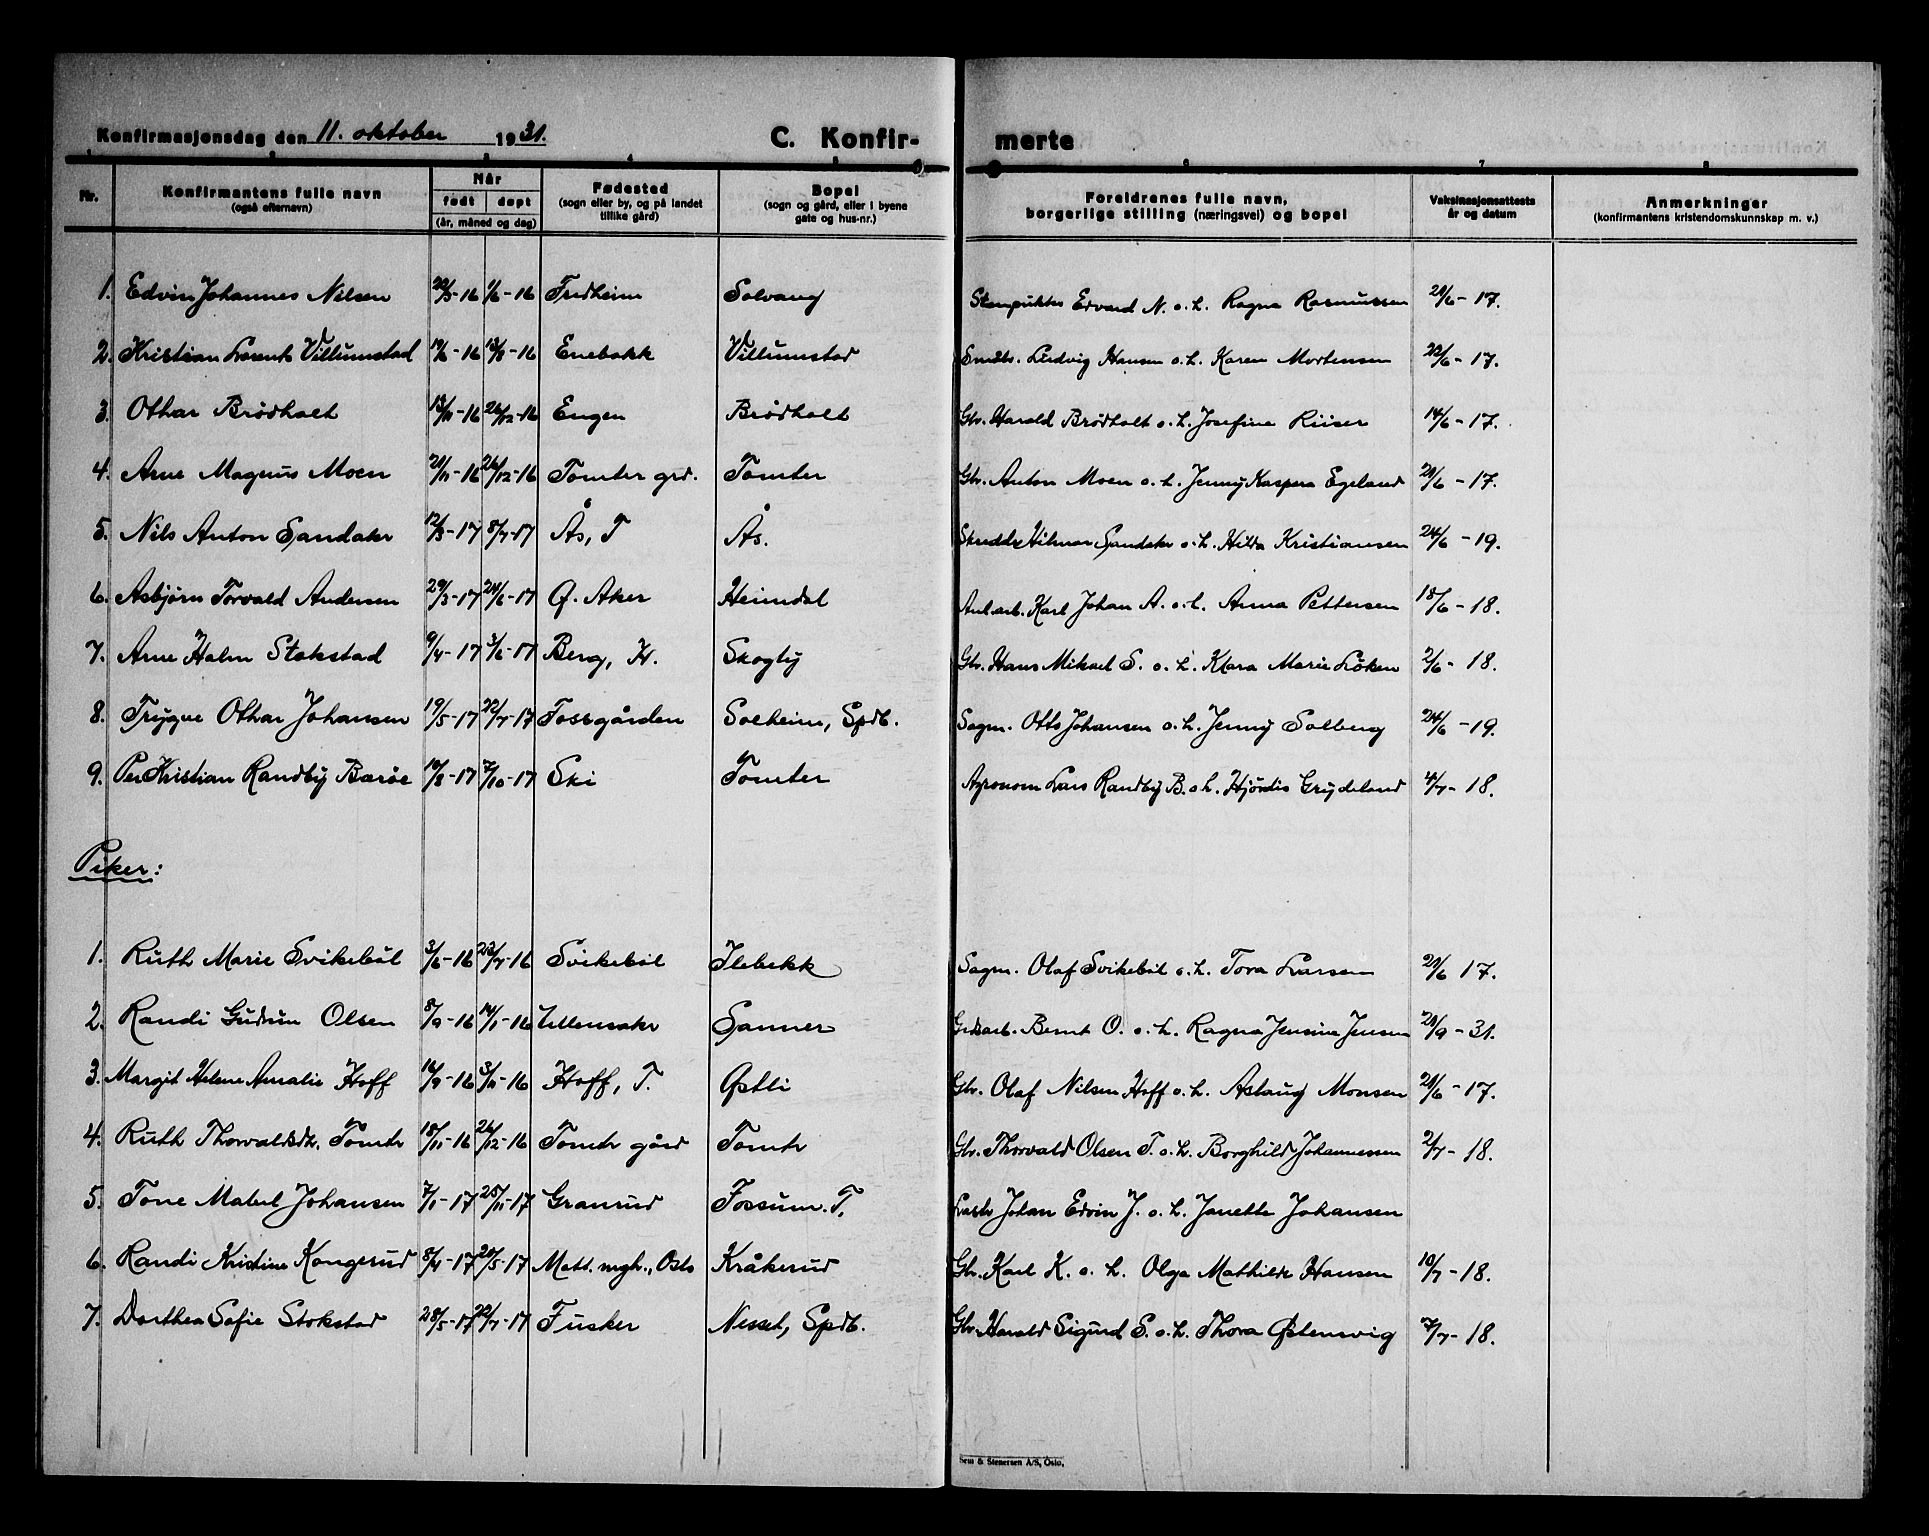 Konfirmasjonsdag den 11. oktober 1931. C. Konfir- merte
1 2 3 4 5 6 7 8
Nr. Konfirmantens fulle navn (også efternavn) Når født døpt (år, måned og dag) Fødested (sogn eller by, og på landet tillike gård) Bopel (sogn og gård, eller i byene gate og hus-nr.) Foreldrenes fulle navn, borgerlige stilling (næringsvei) og bopel Vaksinasjonsattests år og datum Anmerkninger (konfirmantens kristendomskunnskap m. v.)
1. Edvin Johannes Nilsen 22/3-16 1/6-16 Fredheim Solvang Edvard N. o. h. Ragna Rasmussen 21/6-17.
2. Kristian Lorents Villumstad 19/6-16 13/8-16 Enebakk Villumstad Småbr. Ludvig Hansen o. h. Karen Mortensen 22/6-17.
3. Othar Brødholt 13/11-16 26/12-16 Engen Brødholt Gbr. Harald Brødholt o. h. Josefine Riiser 14/6-17.
4. Arne Magnus Moen 21/11-16 26/12-16 Tomter grd. Tomter Gbr. Anton Moen o. h. Jenny Kaspera Egeland 21/6-17.
5. Nils Anton Sandaker 12/3-17 8/7-17 Ås, T Ås. Skredder Hilmar Sandaker o. h. Hilda Kristiansen 24/6-19.
6. Asbjørn Torvald Andersen 29/3-17 24/6-17 Ø. Aker Heimdal Anl.arb. Karl Johan A. o. h. Anna Pettersen 18/6-18.
7. Arne Holm Stokstad 9/4-17 3/6-17 Berg, Kr. Skogly Gbr. Hans Mikael S. o. h. Klara Marie Løken 2/6-18.
8. Trygve Othar Johansen 19/5-17 22/7-17 Tossgården Solheim, Spdb. Sagm. Otto Johansen o. h. Jenny Solberg 24/6-19.
9. Per Kristian Randby Barøe 10/8-17 7/10-17 Ski Tomter Agronom Lars Randby B. o. h. Hjørdis Grydeland 4/7-18.
Piker:
1. Ruth Marie Svikebøl 3/6-16 23/7-16 Svikebøl Ilebekk Sagm. Olaf Svikebøl o. h. Tora Larsen 21/6 17.
2. Randi Gudrun Olsen 8/9-16 14/1-16 Ullensaker Sanner Grdsarb. Bernt O. o. h. Ragna Jensine Jensen 21/9-31.
3. Margit Helene Amalie Hoff 16/9-16 3/11-16 Hoff, T. Østli Gbr. Olaf Nilsen Hoff o. h. Aslaug Monsen 21/6-17.
4. Ruth Thorvaldsdtr. Tomter 18/11-16 26/12-16 Tomter gård Tomter Gbr. Thorvald Olsen T. o. h. Borghild Johannessen 2/7-18.
5. Tone Mabel Johansen 7/1-17 25/11-17 Granrud Fossum. T. Johan Edvin J. o. h. Janette Johansen
6. Randi Kristine Kongerud 8/4-17 20/5-17 Matt. mgh., Oslo Kråkerud Gbr. Karl K. o. h. Olga Mathilde Hansen 10/7-18.
7. Dorthea Sofie Stokstad 28/5-17 22/7-17 Fusker Nesset, Spdb. Gbr. Harald Sigurd S. o. h. Thora Østensvig 7/7-18.
Sem & Stenersen A/S, Oslo.